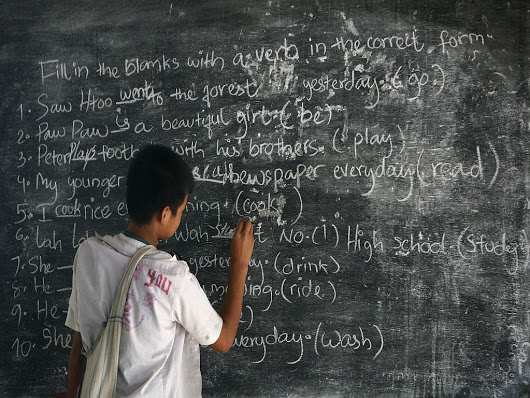 Fill in the blanks with a verb in the correct form
1. Saw Htoo went to the forest yesterday. (go)
2. Paw Paw is a beautiful girl. (be)
3. Peter play footb with his brothers. (play)
4. My younger read newspaper everyday (read)
5. I cook rice e ning. (cook)
6. Lah Wah at No. (1) High school. (study)
7. She yesterday. (drink)
8. He ing. (ride)
9. He
10. She everyday. (wash)
YOU